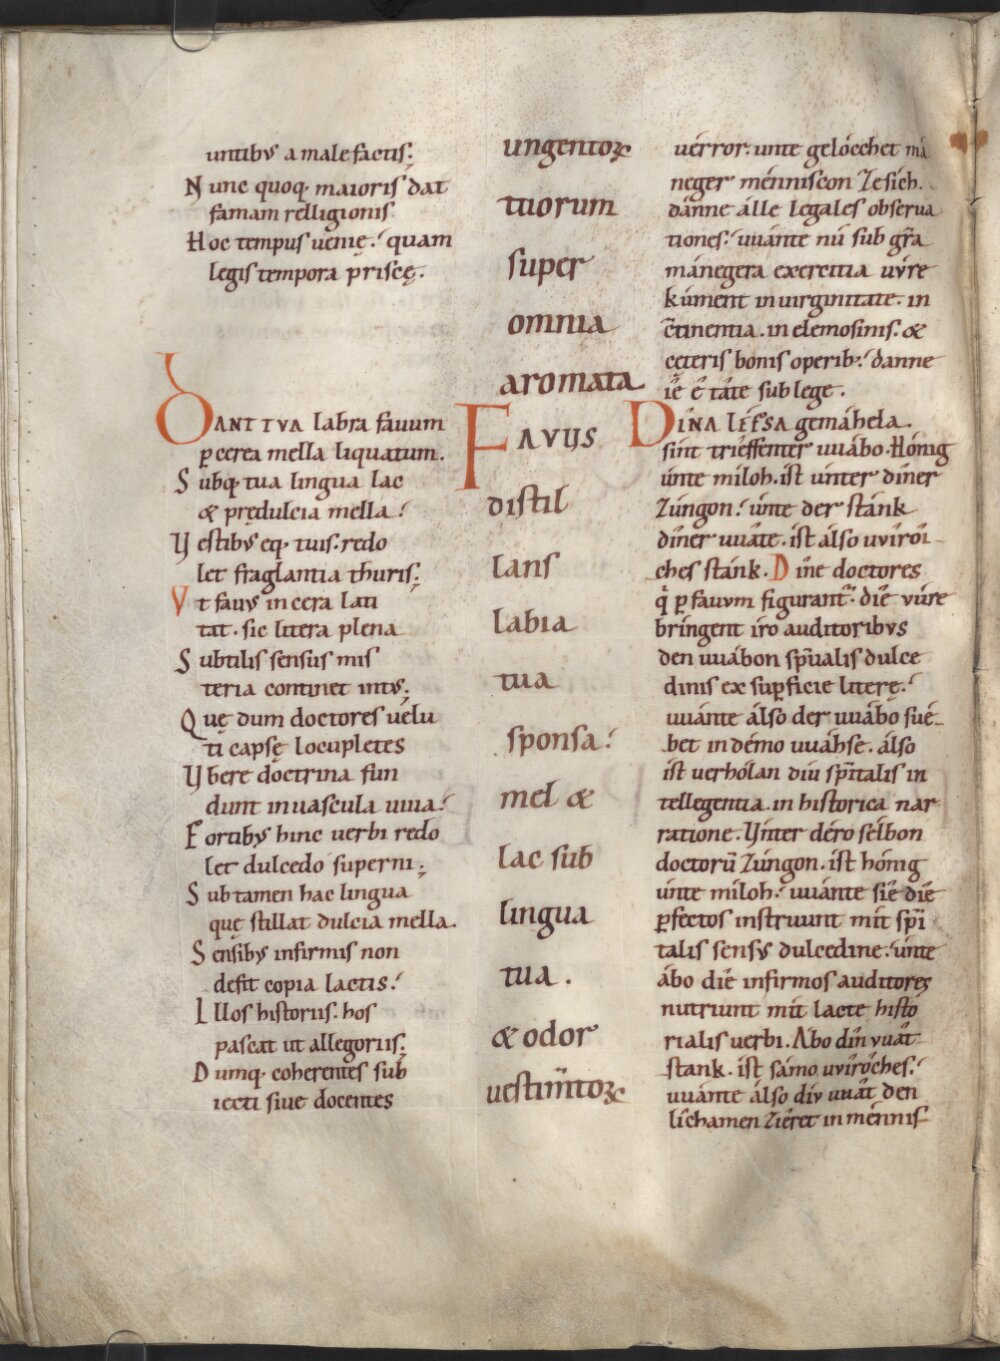 untibꝰ a malefactis;
Nunc quoq; maioris dat
famam relligionis
Hoc tempus uenię. quam
legis tempora priscę.
DANT TVA labra fauum
ꝑ cerea mella liquatum.
Subq; tua lingua lac
& prędulcia mella.
Vestibꝰ eq; tuis. redo
let fraglantia thuris;
Vt fauꝰ in cera lati
tat. sic litera plena
Subtilis sensus mis
teria continet intꝰ;
Quę dum doctores uélu
ti capsę locupletes
Vbere doctrina fun
dunt in uascula uiua.
Fortibꝰ hinc uerbi redo
let dulcedo superni;
Sub tamen hac lingua
quę stillat dulcia mella.
Sensibꝰ infirmis non
defit copia lactis.
Illos historiis. hos
pascat ut allegoriis;
Dumq; coherentes sub
iecti siue docentes
ungentoꝝ
tuorum
super
omnia
aromata
FAVVS
distil
lans
labia
tua
sponsa.
mel &
lac sub
lingua
tua.
& odor
uestim̄toꝝ
uérror. unte gelócchet má
neger ménniscon zesích.
dánne álle legales obserua
tiones. uuánte nú sub gr̄a
mánegera exercitia vvre
kúment in uirginitate. in
c̄tinentia. in elemosinis. &
cęteris bonis operib; danne
iê ê tâte sub lege.
DÍNA LÉFSA gemáhela.
sint trieffenter uuábo. Hónig
únte miloh. ist únter dîner
zúngon. únte der stánk
dîner uuâte. ist álso uvîrôi
ches stánk. Dîne doctores
q̇ ꝑ fauum figurant̃. die vúre
bríngent íro auditoribꝰ
den uuábon sp̄ualis dulce
dinis ex suꝑficie literę.
uuánte álso der uuábo sué
bet in démo uuáhse. álso
ist uerhólan diu sp̄italis in
tellegentia. in historica nar
ratione. Vnter déro sélbon
doctorū zúngon. ist hónig
únte miloh. uuánte siê die
ꝑfectos instruunt mit sp̄i
talis sensꝰ dulcedine. únte
ábo diê infirmos auditores
nutriunt mit lacte histo
rialis uerbi. Abo dîn vuât
stank. ist sámo uvîrôches.
uuánte álso div uuât den
lîchamen ziêret in ménnis